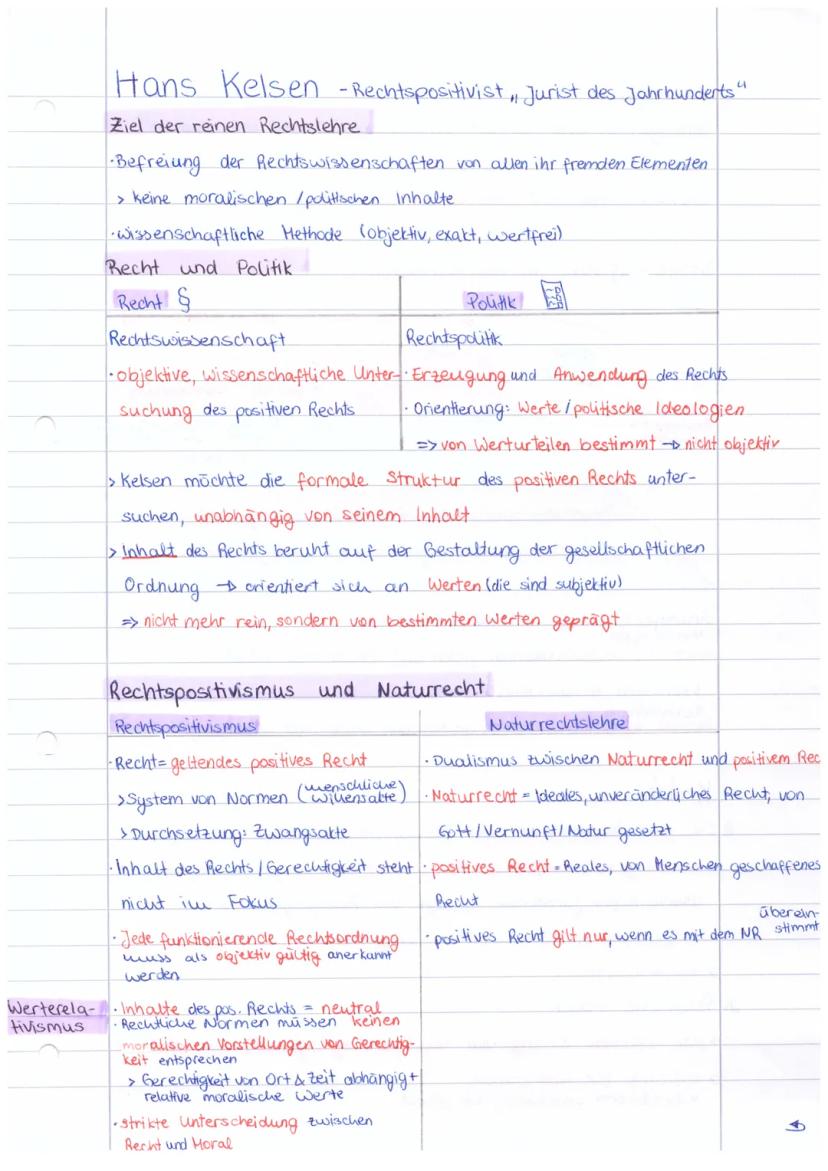 Hans Kelsen - Rechtspositivist „Jurist des Jahrhunderts“
Ziel der reinen Rechtslehre
·Befreiung der Rechtswissenschaften von allen ihr fremden Elementen
> keine moralischen / politischen Inhalte
·wissenschaftliche Methode (objektiv, exakt, wertfrei)
Recht und Politik
Recht §
Politik
Rechtswissenschaft
·objektive, wissenschaftliche Unter-
suchung des positiven Rechts
Rechtspolitik
·Erzeugung und Anwendung des Rechts
·Orientierung: Werte / politische Ideologien
=> von Werturteilen bestimmt → nicht objektiv
> Kelsen möchte die formale Struktur des positiven Rechts unter-
suchen, unabhängig von seinem Inhalt
> Inhalt des Rechts beruht auf der Gestaltung der gesellschaftlichen
Ordnung → orientiert sich an Werten (die sind subjektiv)
=> nicht mehr rein, sondern von bestimmten Werten geprägt
Rechtspositivismus und Naturrecht
Rechtspositivismus
·Recht = geltendes positives Recht
> System von Normen (menschliche Willensakte)
> Durchsetzung: Zwangsakte
·Inhalt des Rechts / Gerechtigkeit steht
nicht im Fokus
·Jede funktionierende Rechtsordnung
muss als objektiv gültig anerkannt
werden
Werterela-
tivismus
·Inhalte des pos. Rechts = neutral
·Rechtliche Normen müssen keinen
moralischen Vorstellungen von Gerechtig-
keit entsprechen
> Gerechtigkeit von Ort & Zeit abhängig +
relative moralische Werte
·strikte Unterscheidung zwischen
Recht und Moral
Naturrechtslehre
·Dualismus zwischen Naturrecht und positivem Rec
·Naturrecht = Ideales, unveränderliches Recht, von
Gott / Vernunft / Natur gesetzt
·positives Recht = Reales, von Menschen geschaffenes
Recht
·positives Recht gilt nur, wenn es mit dem NR überein-
stimmt